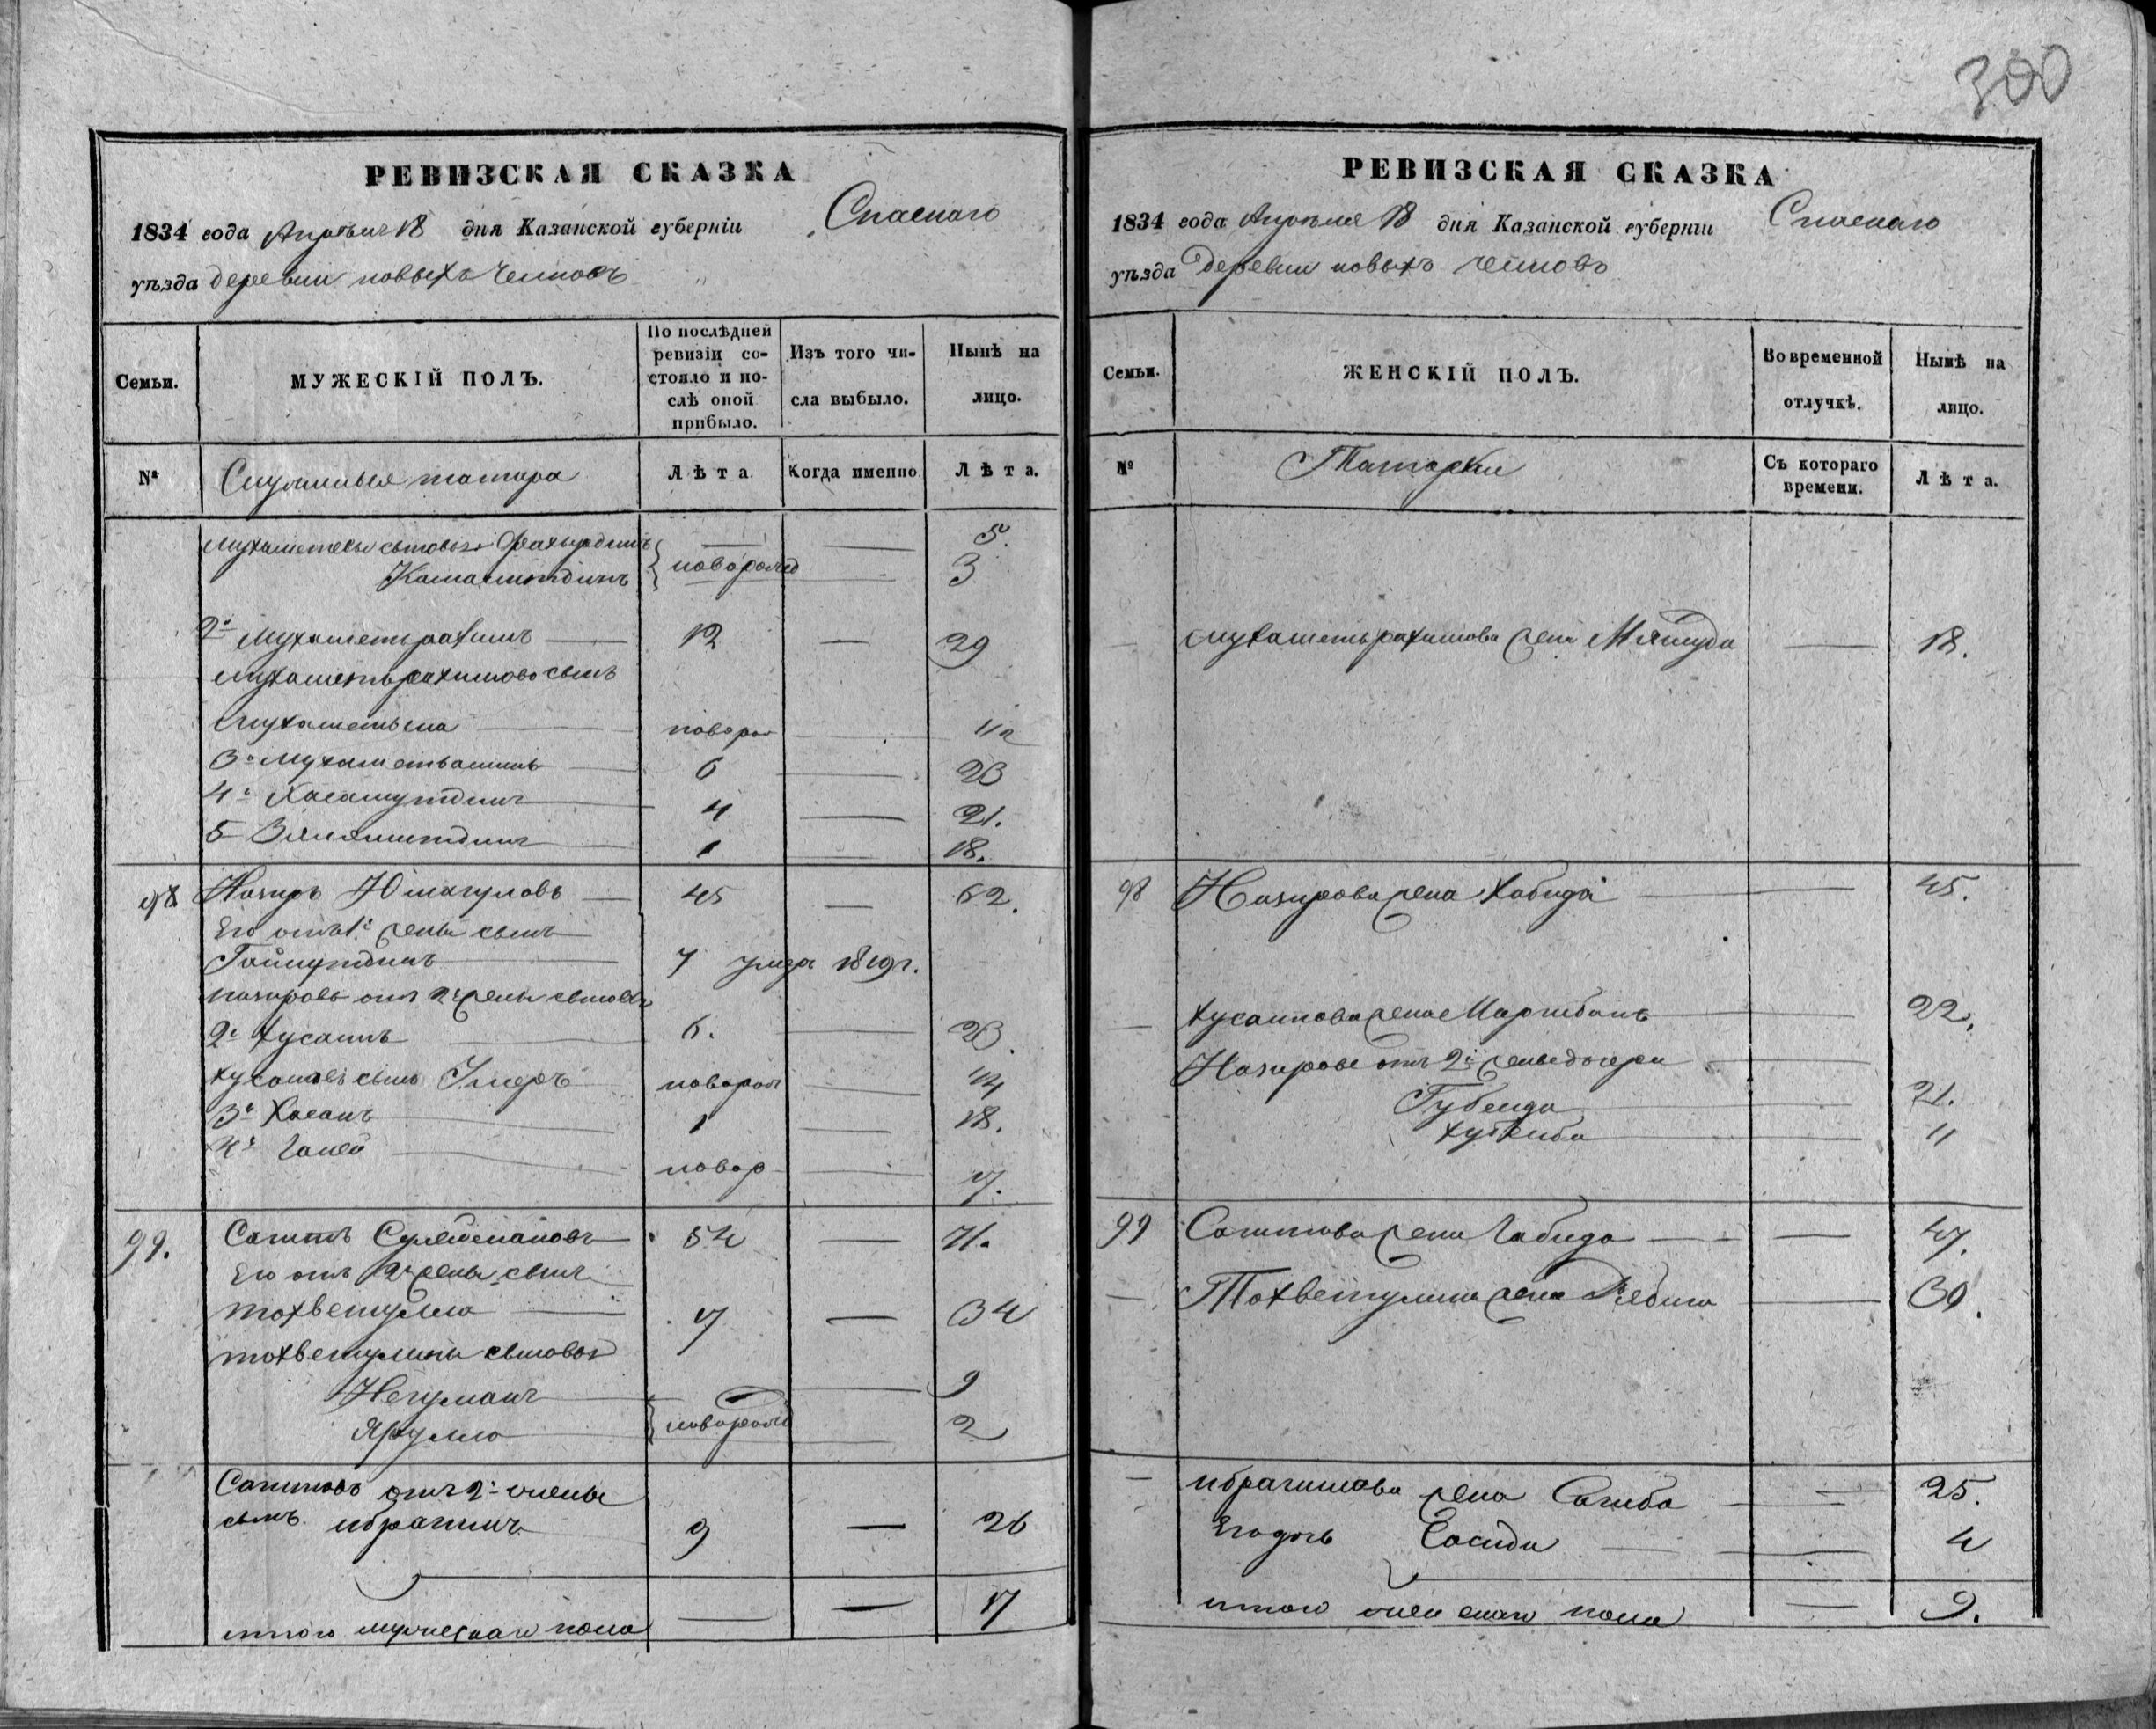 300
РЕВИЗСКАЯ СКАЗКА
1834 года Апрѣля 18 дня Казанской губерніи Спаскаго
уѣзда деревни новыхъ Челновъ
Семьи.
МУЖЕСКІЙ ПОЛЪ.
По послѣдней ревизіи состояло и послѣ оной прибыло.
Изъ того числа выбыло.
Нынѣ на лицо.
№
Служилыя татара
Лѣта
Когда именно
Лѣта.
Фахрудинъ — 5.
Камалитдинъ новорожд — 3
2й Мухаметрахимъ 12 — 29
Мухаметьрахимово сынъ
новорож
3й 6 — 23
4й Хасамутдинъ 4 — 21.
5 1 — 18.
98 Назиръ Юмагуловъ 45 — 62.
Его отъ 1й жены сынъ
Гайнутдинъ 7 умеръ 1819г.
Назировъ отъ 2й жены сыновья
2й Хусаинъ 6. — 23.
Хусаиновъ сынъ Умеръ новорож
3й Хасанъ 1 — 18.
4й новор — 7.
99. Сагитъ Сулейманов 54 — 71.
Его отъ жены сынъ
Тохветулла 7 — 34
Тохветулины сыновья
Негуманъ — 9
Ярулла новорожд — 2
Сагитовъ отъ 2й жены
сынъ Ибрагимъ 9 — 26
итого мужескаго пола — — 17
РЕВИЗСКАЯ СКАЗКА
1834 года Апрѣля 18 дня Казанской губерніи Спаскаго
уѣзда деревни новыхъ Челновъ
Семьи.
ЖЕНСКІЙ ПОЛЪ.
Во временной отлучкѣ.
Нынѣ на лицо.
№
Татарки
Съ котораго времени.
Лѣта.
Мухаметьрахимова жена — 18.
98 Назирова жена Хабида — 45.
Хусаинова жена — 22.
Назирове отъ 2й жены дочери
Губейда — 21.
— 11
99 Сагитова жена Габида — 47.
Тохветулина жена — 30.
Ибрагимова жена Сагиба — 25.
Его дочь — 4
итого женскаго пола — 9.